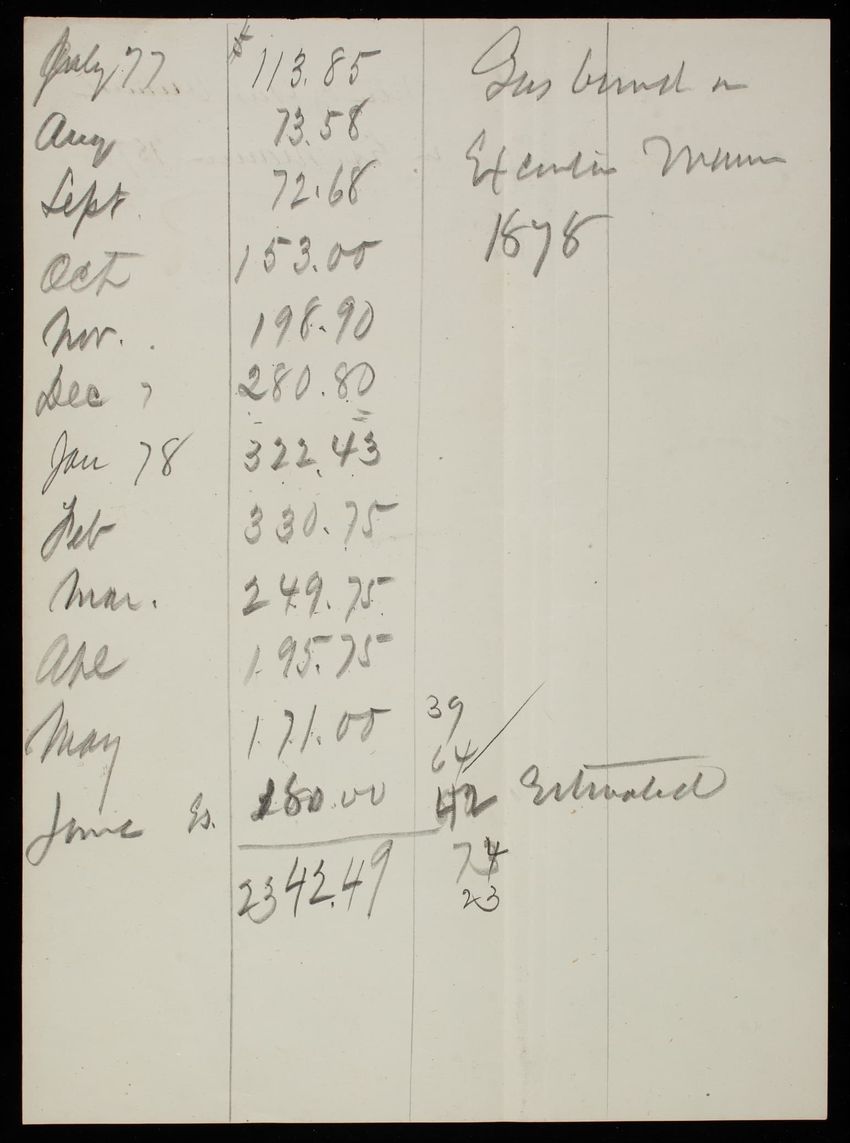 July 77 $ 113.85
Aug 73.58
Sept 72.68
Oct 153.00
Nov. 198.90
Dec 7 280.80
Jan 78 322.43
Feb 330.75
Mar. 249.75
Apl 195.75
May 171.00
June Es. 180.00
2342.49
Gas burned in
Executive Mansion
1878
39
64
42 Estimated
74
23